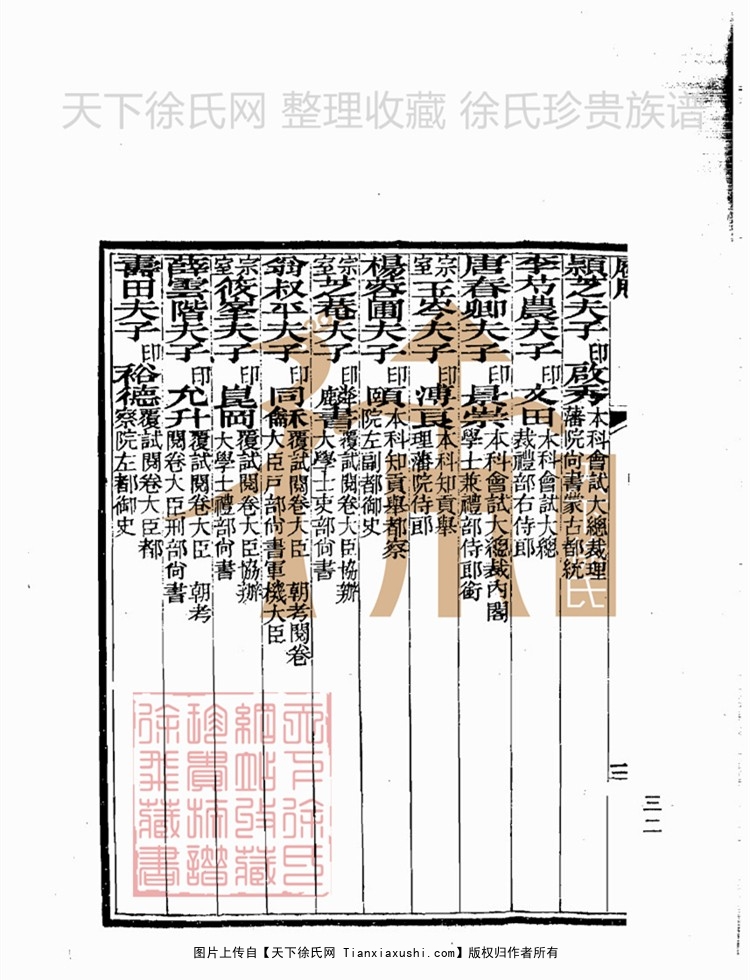 天下徐氏网 整理收藏 徐氏珍贵族谱
穎芝夫子 印 啟秀 本科會試大總裁理藩院尚書蒙古都統
李芍農夫子 印 文田 本科會試大總裁禮部右侍郎
唐春卿夫子 印 景崇 本科會試大總裁內閣學士兼禮部侍郎銜
宗室玉岑夫子 印 溥良 本科知貢舉理藩院侍郎
楊蓉圃夫子 印 頤 本科知貢舉都察院左副都御史
宗室芝菴夫子 印 麟書 覆試閱卷大臣協辦大學士吏部尚書
翁叔平夫子 印 同龢 覆試閱卷大臣 朝考閱卷大臣戶部尚書軍機大臣
宗室筱峯夫子 印 崑岡 覆試閱卷大臣協辦大學士禮部尚書
薛雲階夫子 印 允升 覆試閱卷大臣 朝考閱卷大臣刑部尚書
壽田夫子 印 裕德 覆試閱卷大臣都察院左都御史
三二
徐
氏
天下徐氏
網站收藏
珍貴族譜
徐飛藏書
图片上传自【天下徐氏网 Tianxiaxushi.com】版权归作者所有